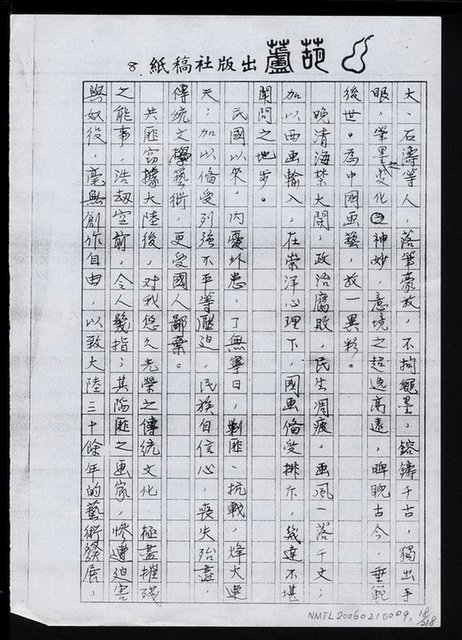 葫蘆出版社稿紙 8.
大、石濤等人,落筆豪放,不拘繩墨,鎔鑄千古,獨出手
眼,筆墨之變化神妙,意境之超逸高遠,睥睨古今,垂範
後世。為中國畫藝,放一異彩。
晚清海禁大開,政治腐敗,民生凋疲,畫風一落千丈;
加以西畫輸入,在崇洋心理下,國畫備受排斥,幾達不堪
聞問之地步。
民國以來,內憂外患,了無寧日,剿匪、抗戰,烽火連
天;加以備受列強不平等壓迫,民族自信心,喪失殆盡,
傳統文學藝術,更受國人鄙棄。
共匪竊據大陸後,對我悠久光榮之傳統文化,極盡摧殘
之能事,浩劫空前,令人髮指;其陷匪之畫家,慘遭迫害
與奴役,毫無創作自由,以致大陸三十餘年的藝術發展,
NMTL20060210009, 18/218